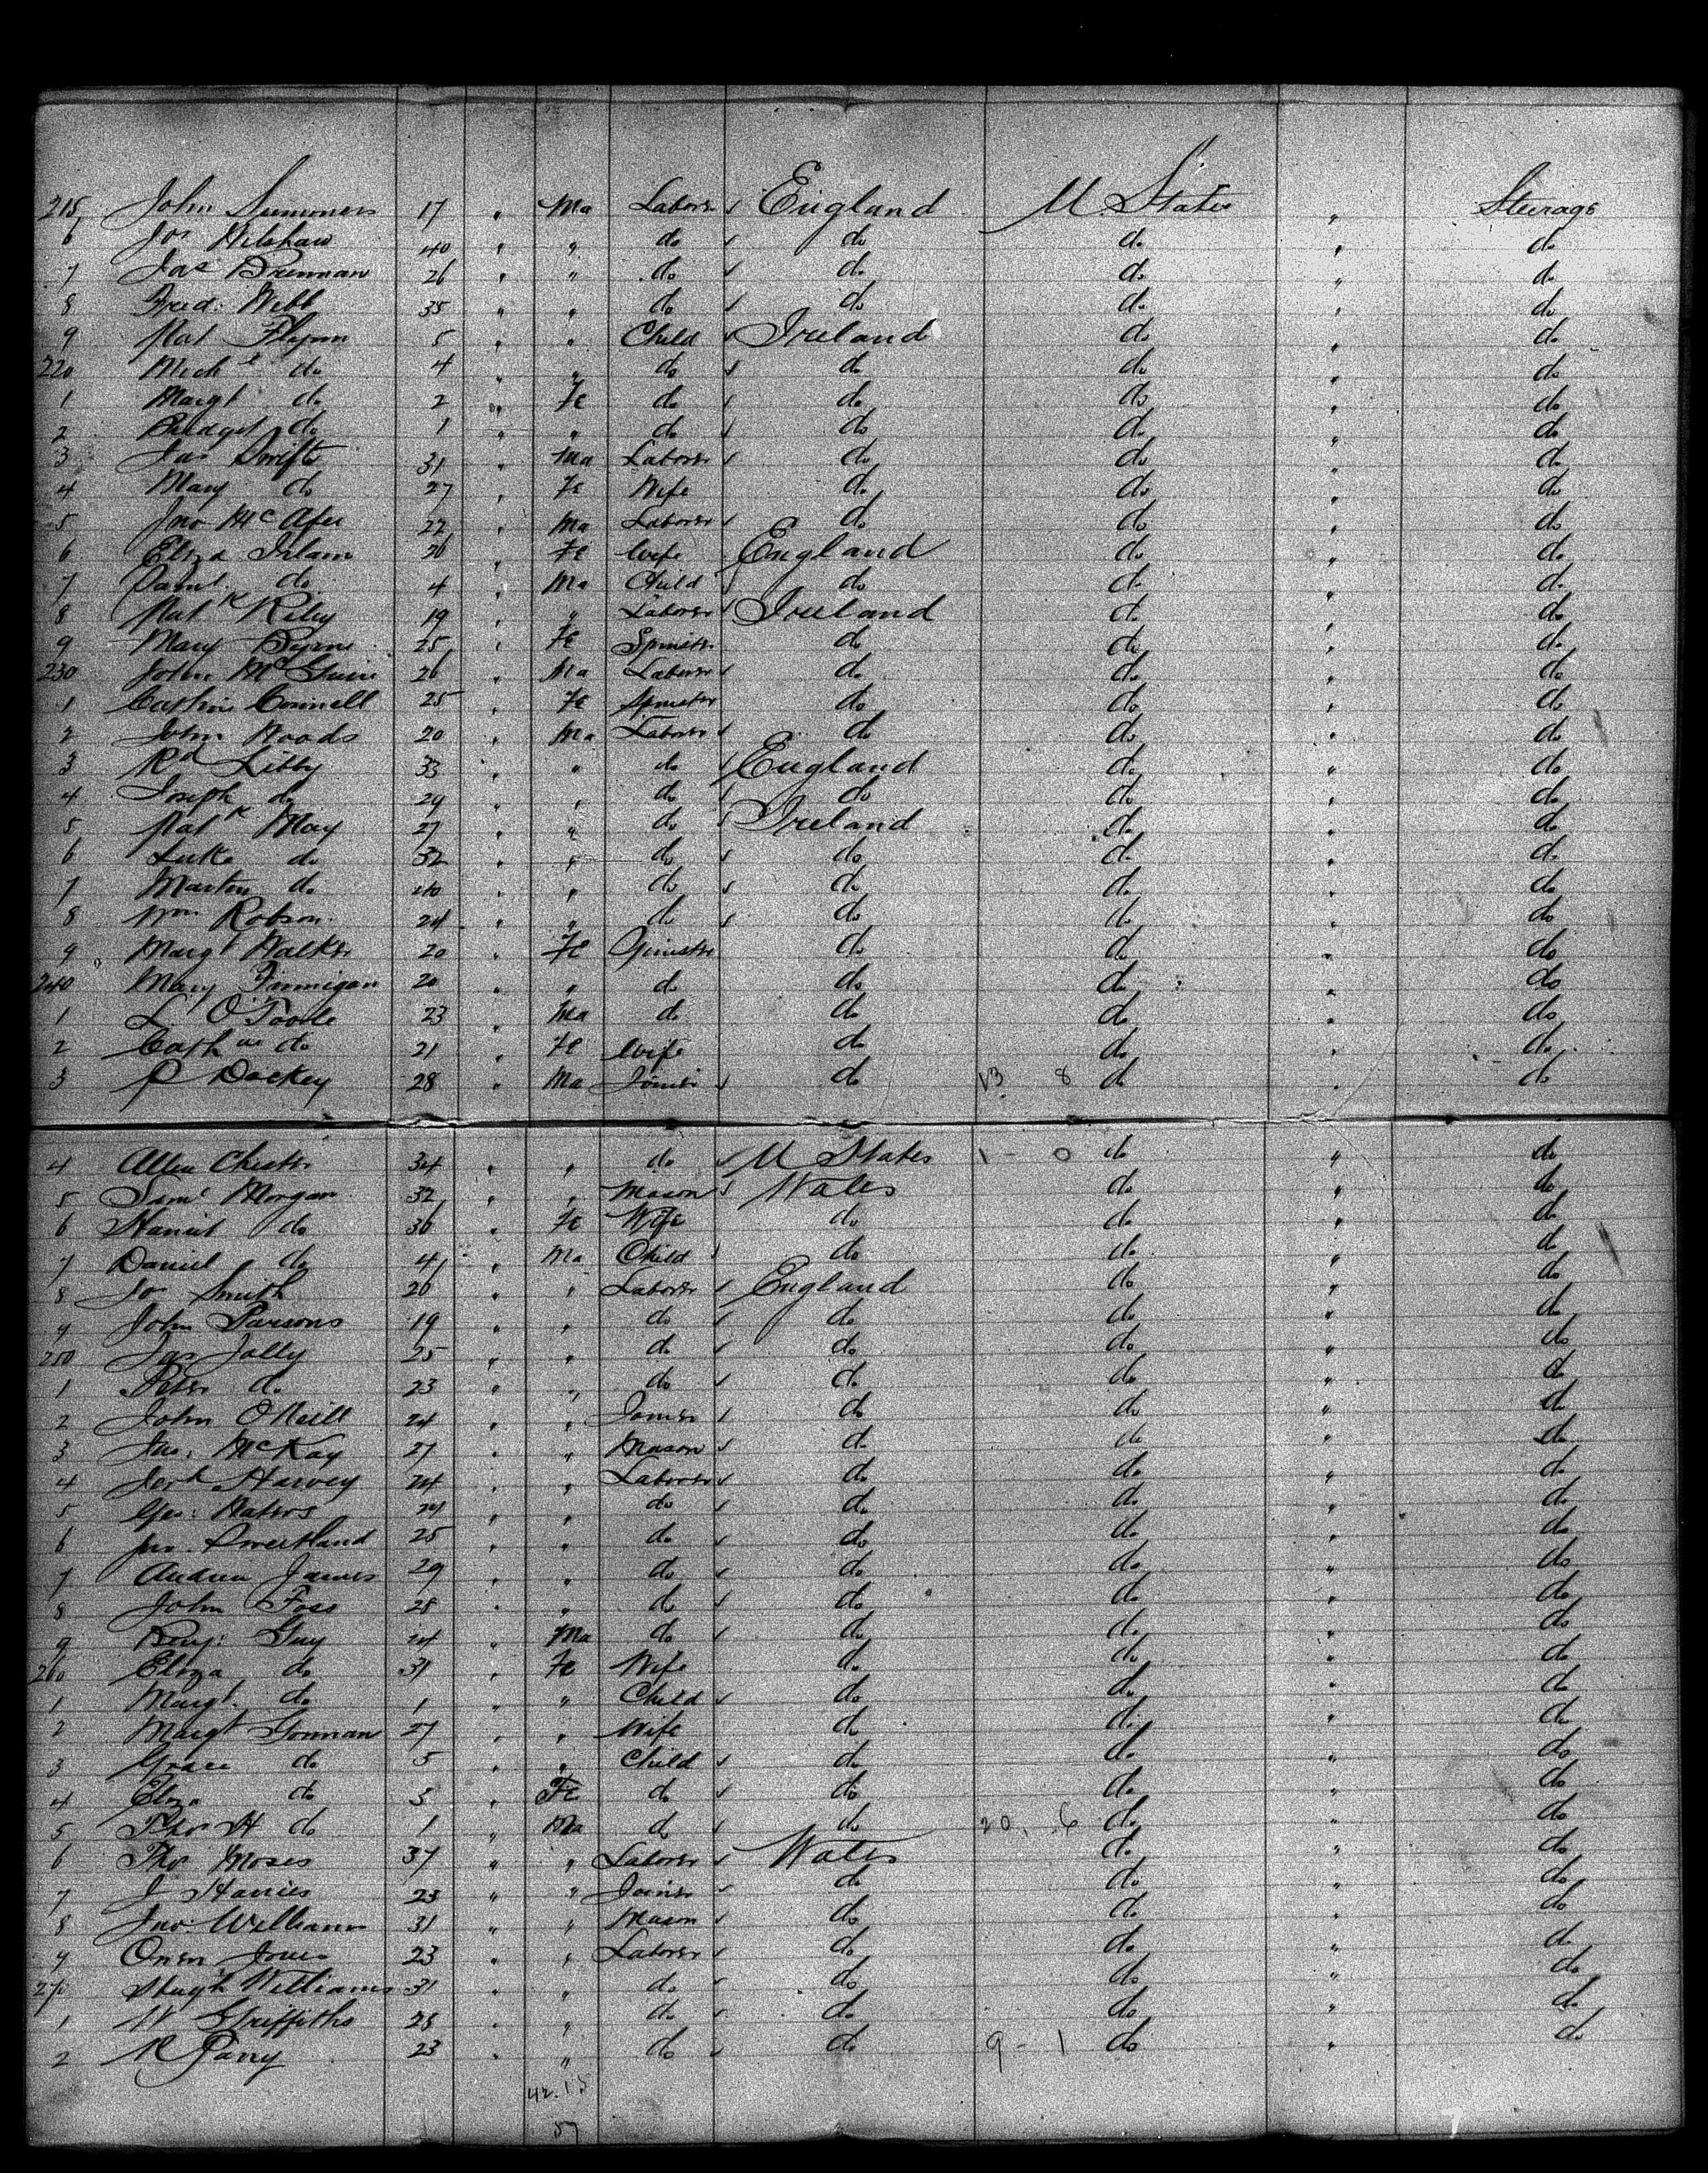 215 John Summers 17 " Ma Laborer England U. States " Steerage
6 Jos Hilshaw 40 " " do do do " do
7 Jas Brennan 26 " " do do do " do
8 Fred: Webb 35 " " do do do " do
9 Pat Flynn 5 " " Child Ireland do " do
220 Mich l do 4 " " do do do " do
1 Margt do 2 " Fe do do do " do
2 Bridget do 1 " " do do do " do
3 Jas Swift 31 " Ma Laborer do do " do
4 Mary do 27 " Fe Wife do do " do
5 Jno McAfee 22 " Ma Laborer do do " do
6 Eliza Islam 26 " Fe Wife England do " do
7 Saml. do 4 " Ma Child do do " do
8 Patk Riley 19 " " Laborer Ireland do " do
9 Mary Byrne 25 " Fe Spinstr do do " do
230 John McGuire 26 " Ma Laborer do do " do
1 Cathrin Connell 25 " Fe Spinster do do " do
2 John Woods 20 " Ma Laborer do do " do
3 Rd Libby 33 " " do England do " do
4 Joseph do 29 " " do do do " do
5 Patk May 27 " " do Ireland do " do
6 Luke do 32 " " do do do " do
7 Martin do 40 " " do do do " do
8 Wm Robson 24 " " do do do " do
9 Margt Walker 20 " Fe Spinster do do " do
240 Mary Finnigan 20 " " do do do " do
1 L O'Toole 23 " Ma do do do " do
2 Cath ne do 21 " Fe Wife do do " do
3 P Dackey 28 " Ma Joiner do 13 8 do " do
4 Allen Chester 34 " " do U States 1 - 0 do " do
5 Saml Morgan 32 " " Mason Wales do " do
6 Harriet do 36 " Fe Wife do do " do
7 Daniel do 4 " Ma Child do do " do
8 Jos Smith 26 " " Laborer England do " do
9 John Parsons 19 " " do do do " do
250 Jas Jolly 25 " " do do do " do
1 Peter do 23 " " do do do " do
2 John O'Neill 24 " " Joiner do do " do
3 Jas: McKay 27 " " Mason do do " do
4 Josh Harvey 24 " " Laborer do do " do
5 Geo: Waters 24 " " do do do " do
6 Jno. Sweetland 25 " " do do do " do
7 Andrew James 29 " " do do do " do
8 John Foss 28 " " do do do " do
9 Benj: Guy 24 " Ma do do do " do
260 Eliza do 31 " Fe Wife do do " do
1 Margt. do 1 " " Child do do " do
2 Margt Gorman 27 " " Wife do do " do
3 Grace do 5 " " Child do do " do
4 Eliza do 3 " Fe do do do " do
5 Thos H do 1 " Ma do do 20. 6 do " do
6 Thos Moses 37 " " Laborer Wales do " do
7 J Harries 23 " " Joiner do do " do
8 Jno: Williams 31 " " Mason do do " do
9 Owen Jones 23 " " Laborer do do " do
270 Hugh Williams 31 " " do do do " do
1 W Griffiths 28 " " do do do " do
2 R Parry 23 " " do do 9 - 1 do " do
42. 15
57
7